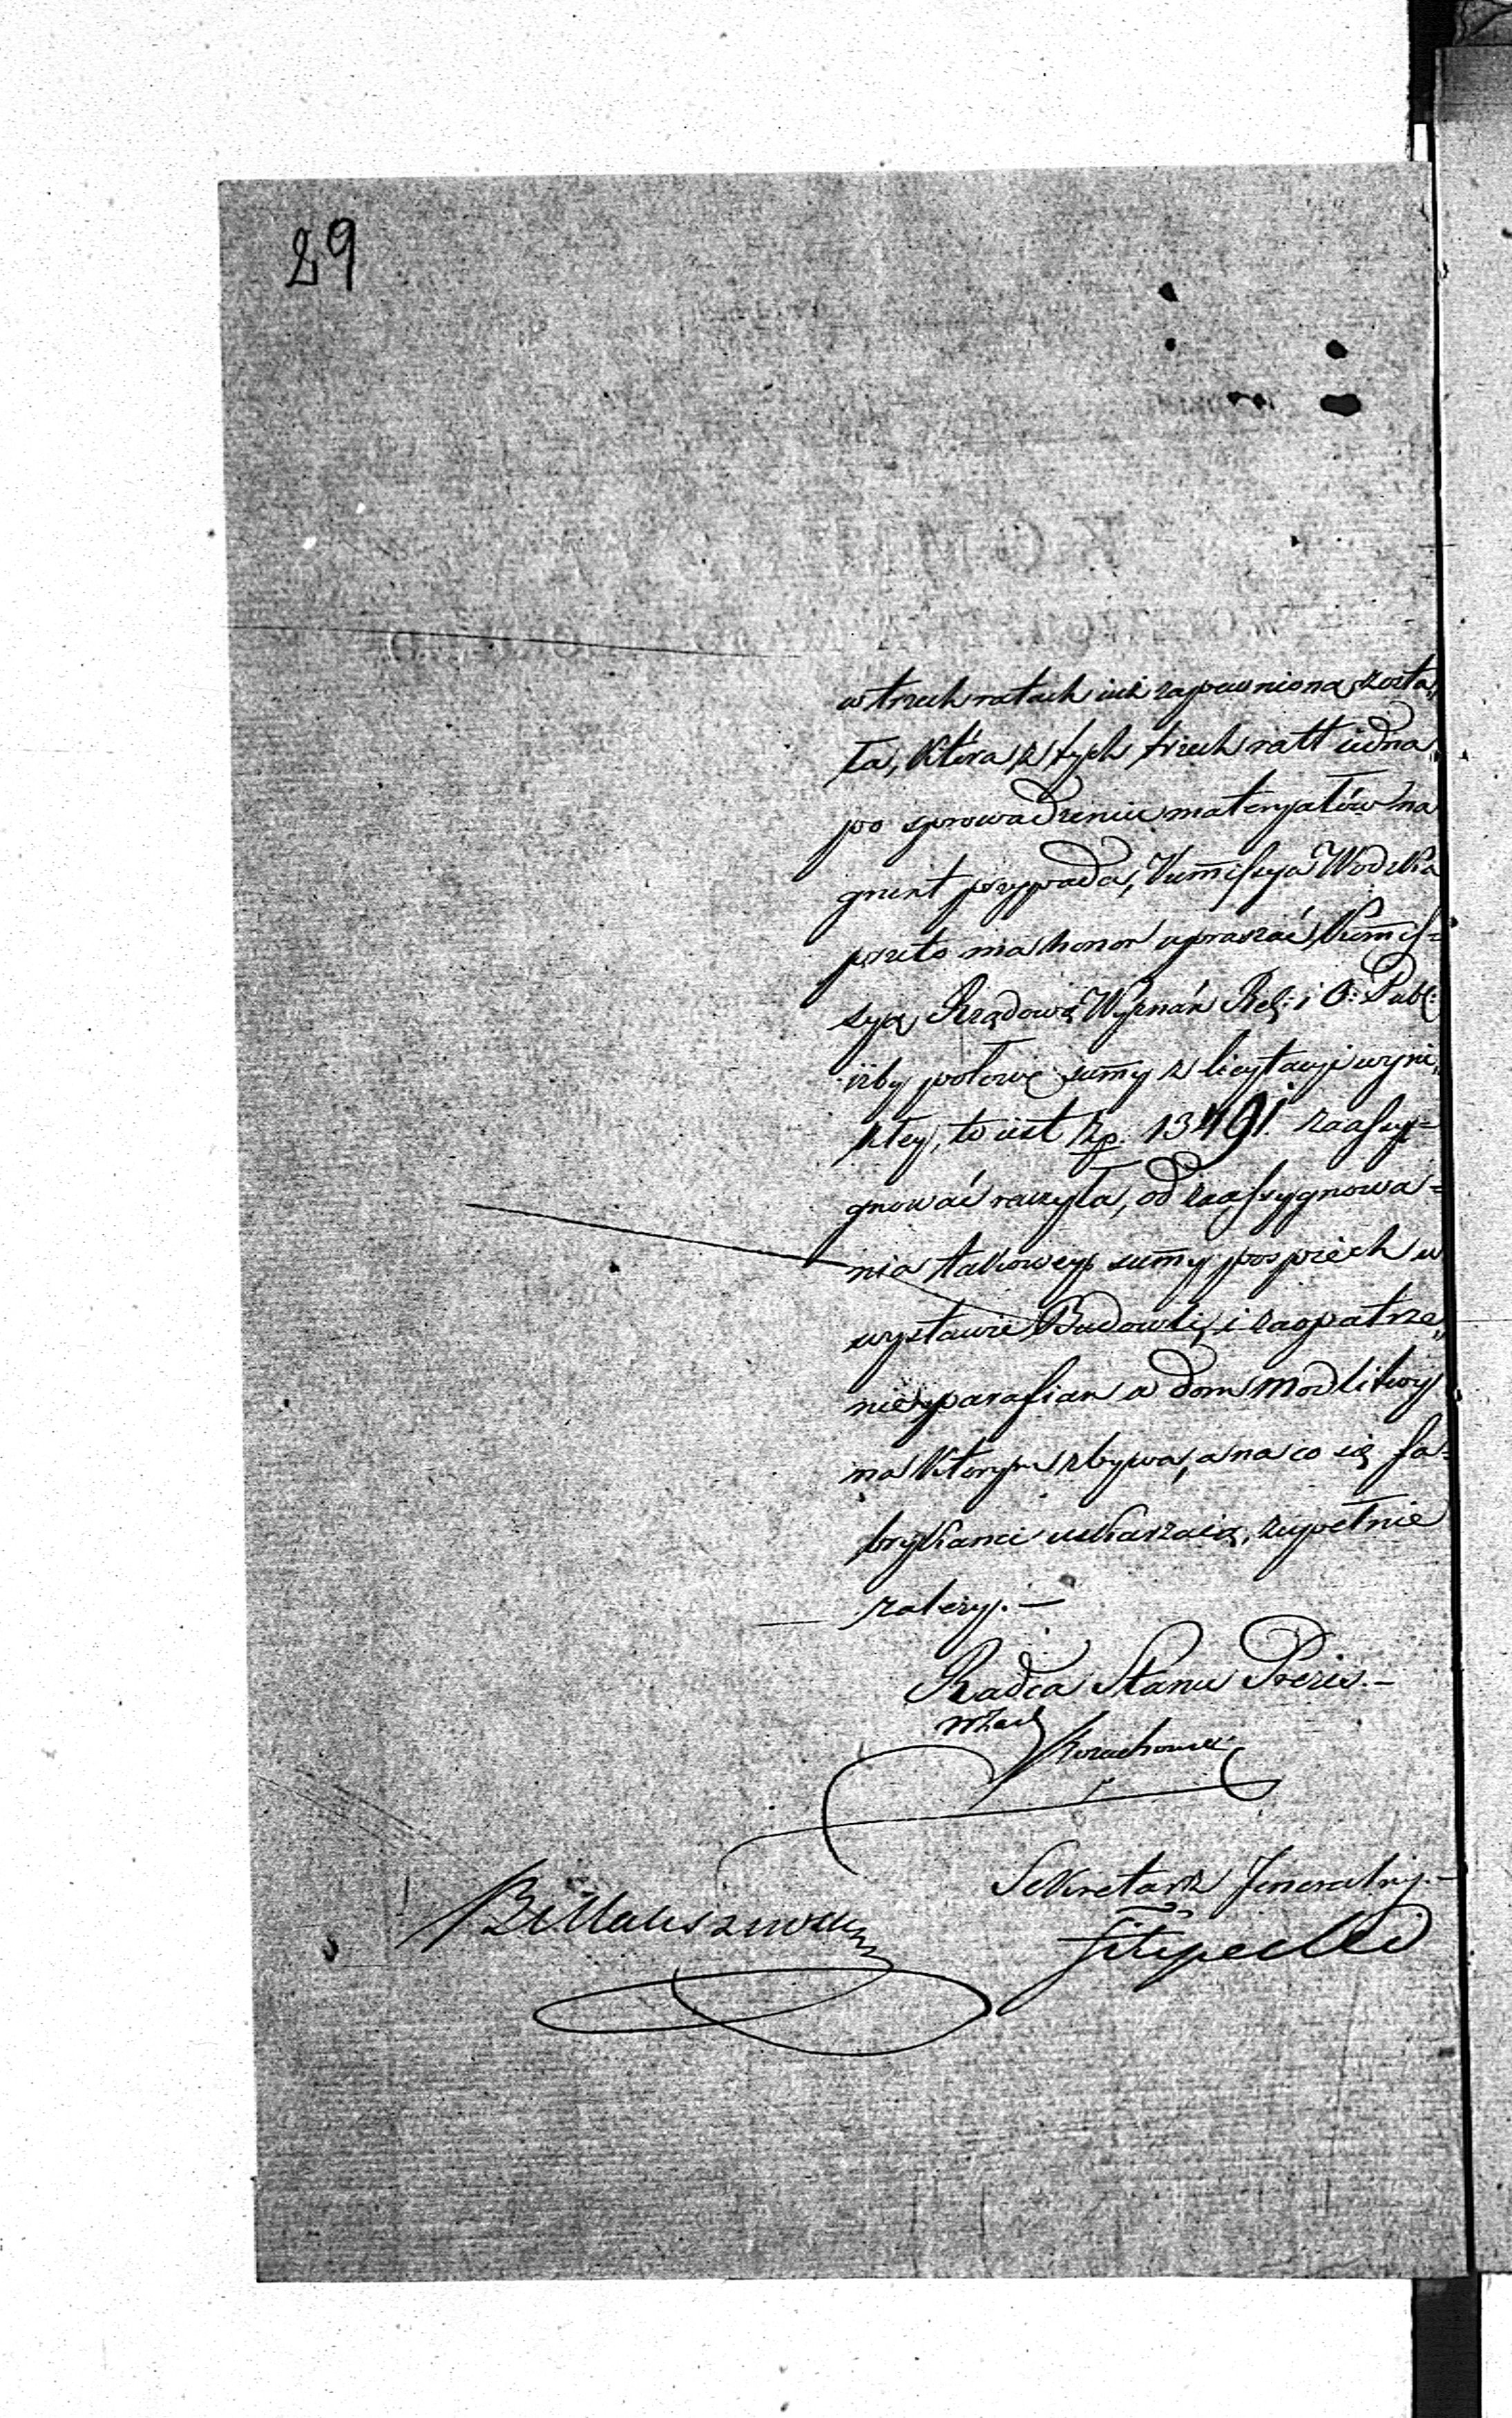 29
w trzech ratach iuż zapewnioną zosta„
ła, która z tych trzech ratt iedna
po sprowadzeniu materyałów na
grunt przypada, Kommissya Wodzka
przeto ma honor upraszać Kommis=
syą Rządową Wyznań Rel: i O: Publ:
iżby połowę summy z licytacyi wyni„
kłey, to iest Zp. 13491. zaassy=
gnować raczyła, od zaassygnowa=
nia takowey summy pospiech w
wystawie Budowli, i zaopatrze„
nie parafian w dom modlitwy
na którym zbywa, a na co się fa=
brykanci uskarzaią, zupełnie
zależy. —
Radca Stanu Prezes. —
w Zast
Sekretarz Jeneralny. —
Filipecki